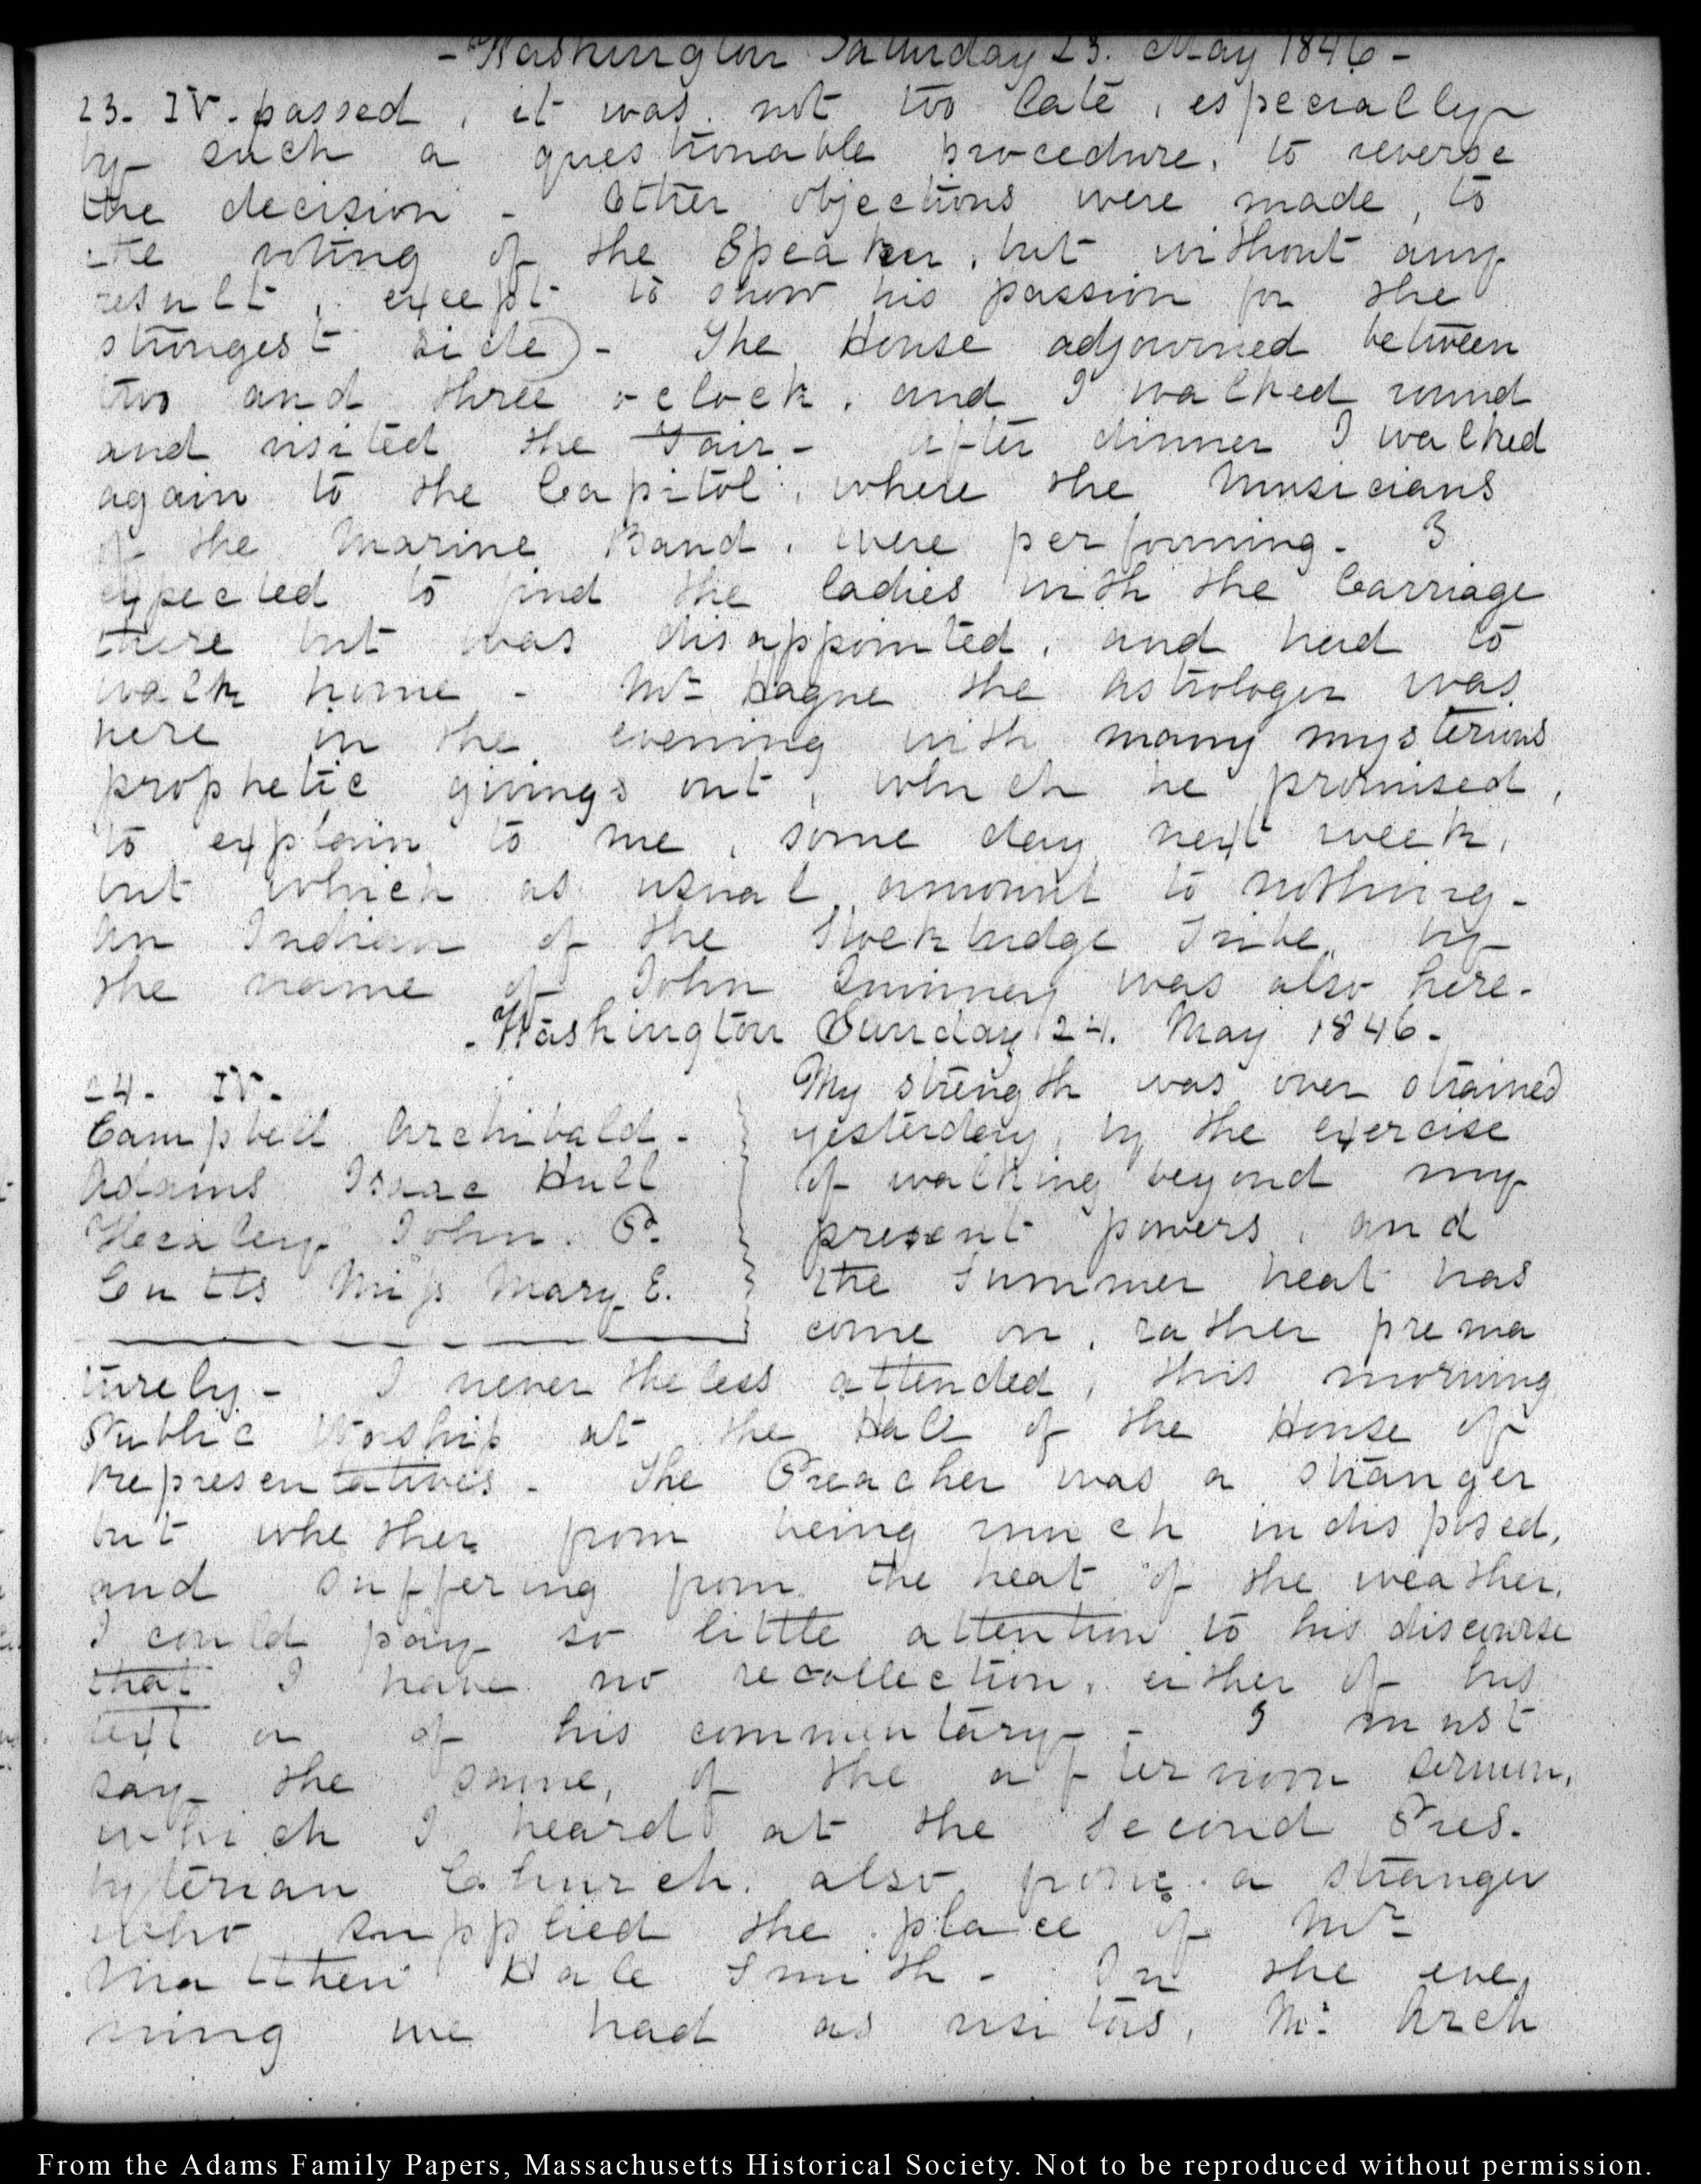 - Washington Saturday 23. May 1846 -
23. IV. passed, it was not too late, especially
by such a questionable procedure, to reverse
the decision - Other objections were made, to
the voting of the Speaker, but without any
result, except to show his passion for the
strongest side) - The House adjourned between
two and three o clock, and I walked round
and visited the Fair - After dinner I walked
again to the Capitol, where the Musicians
of the Marine Band, were performing - I
expected to find the ladies with the Carriage
there but was disappointed, and had to
walk home - Mr Hague the astrologer was
here in the evening with many mysterious
prophetic givings out, which he promised,
to explain to me, some day next week,
but which as usual amount to nothing -
An Indian of the Stockbridge Tribe, by
the name of John Quinney was also here -
- Washington Sunday 24. May 1846 -
24. IV.
Campbell Archibald -
Adams Isaac Hull
Healey John. P.
Cutts Miss Mary E.
My strength was over strained
yesterday, by the exercise
of walking beyond my
present powers, and
the summer heat has
come on, rather prema
turely - I never theless attended, this morning
Public Worship at the Hall of the House of
Representatives - The Preacher was a stranger
but whether from being much indisposed,
and suffering from the heat of the weather,
I could pay so little attention to his discourse
that I have no recollection, either of his
text or of his commentary - I must
say the same, of the afternoon sermon,
which I heard at the Second Pres-
byterian Church, also from a stranger
who supplied the place of Mr
Matthew Hale Smith - In the eve,
ning we had as visitors, Mr Arch
From the Adams Family Papers, Massachusetts Historical Society. Not to be reproduced without permission.